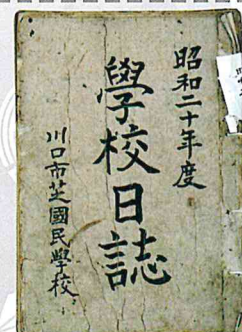 昭和二十年度
學校日誌
川口市芝國民學校